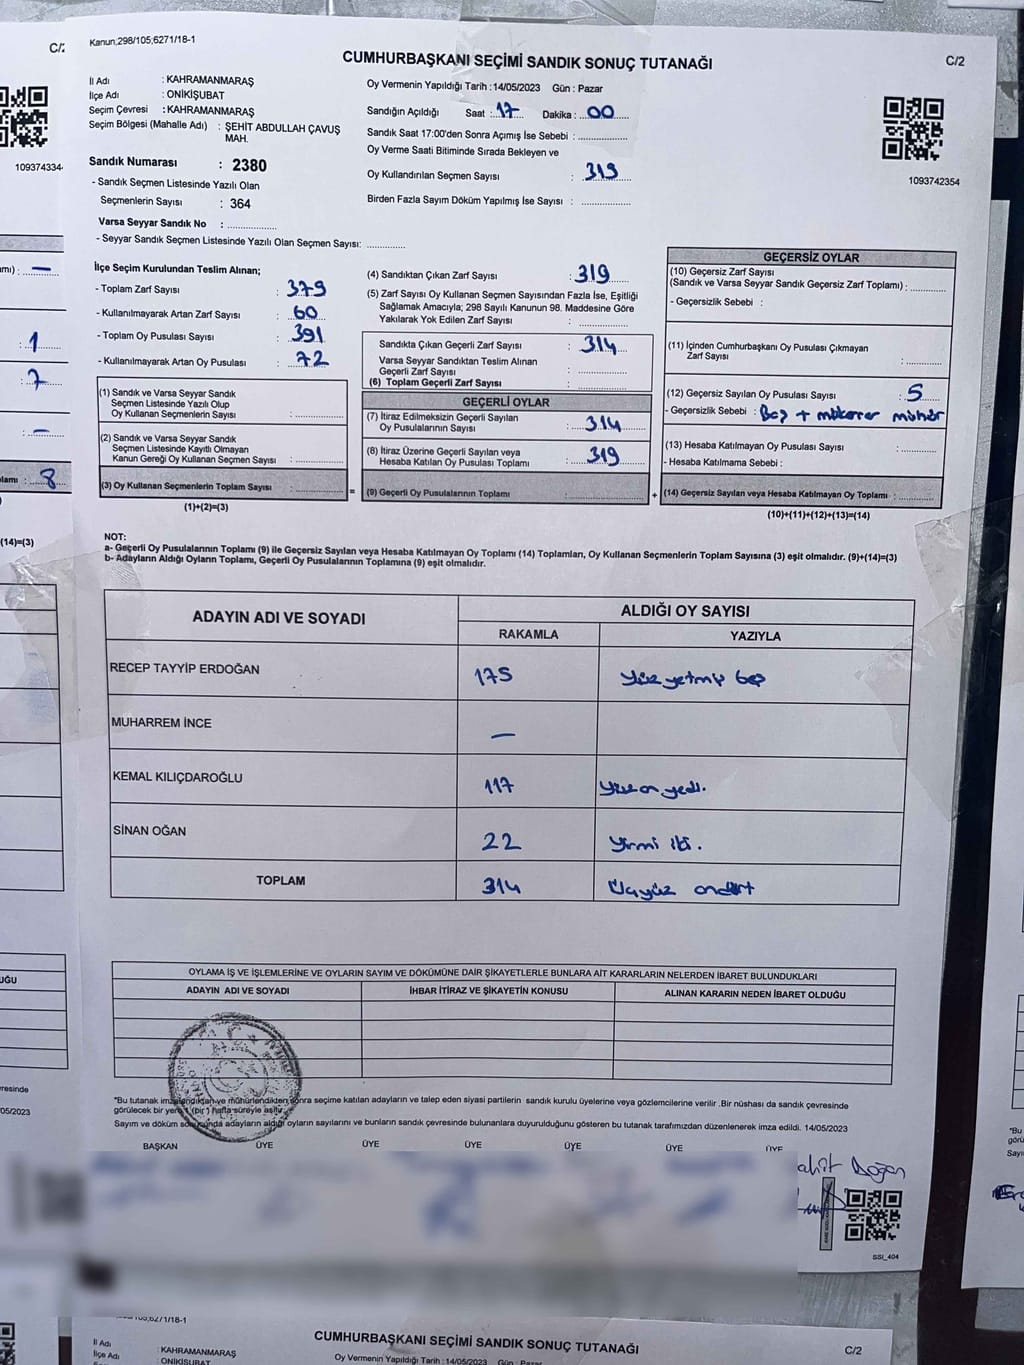 C/2
Kanun;298/105;6271/18-1
CUMHURBAŞKANI SEÇİMİ SANDIK SONUÇ TUTANAĞI
C/2
İl Adı : KAHRAMANMARAŞ
İlçe Adı : ONİKİŞUBAT
Seçim Çevresi : KAHRAMANMARAŞ
Seçim Bölgesi (Mahalle Adı) : ŞEHİT ABDULLAH ÇAVUŞ
MAH.
Sandık Numarası : 2380
- Sandık Seçmen Listesinde Yazılı Olan
Seçmenlerin Sayısı : 364
Varsa Seyyar Sandık No : ..................
- Seyyar Sandık Seçmen Listesinde Yazılı Olan Seçmen Sayısı: ..............
Oy Vermenin Yapıldığı Tarih : 14/05/2023 Gün : Pazar
Sandığın Açıldığı Saat : 17 Dakika : 00
Sandık Saat 17:00'den Sonra Açımış İse Sebebi : ..................
Oy Verme Saati Bitiminde Sırada Bekleyen ve
Oy Kullandırılan Seçmen Sayısı : 319
Birden Fazla Sayım Döküm Yapılmış İse Sayısı : ..................
1093742354
109374334
İlçe Seçim Kurulundan Teslim Alınan;
- Toplam Zarf Sayısı : 379
- Kullanılmayarak Artan Zarf Sayısı : 60
- Toplam Oy Pusulası Sayısı : 391
- Kullanılmayarak Artan Oy Pusulası : 72
(1) Sandık ve Varsa Seyyar Sandık
Seçmen Listesinde Yazılı Olup
Oy Kullanan Seçmenlerin Sayısı : ..............
(2) Sandık ve Varsa Seyyar Sandık
Seçmen Listesinde Kayıtlı Olmayan
Kanun Gereği Oy Kullanan Seçmen Sayısı : ..............
(3) Oy Kullanan Seçmenlerin Toplam Sayısı : ..............
(1)+(2)=(3)
(4) Sandıktan Çıkan Zarf Sayısı : 319
(5) Zarf Sayısı Oy Kullanan Seçmen Sayısından Fazla İse, Eşitliği
Sağlamak Amacıyla; 298 Sayılı Kanunun 98. Maddesine Göre
Yakılarak Yok Edilen Zarf Sayısı : ..............
Sandıkta Çıkan Geçerli Zarf Sayısı : 314
Varsa Seyyar Sandıktan Teslim Alınan
Geçerli Zarf Sayısı : ..............
(6) Toplam Geçerli Zarf Sayısı : ..............
GEÇERLİ OYLAR
(7) İtiraz Edilmeksizin Geçerli Sayılan
Oy Pusulalarının Sayısı : 314
(8) İtiraz Üzerine Geçerli Sayılan veya
Hesaba Katılan Oy Pusulası Toplamı : 319
= (9) Geçerli Oy Pusulalarının Toplamı : ..............
GEÇERSİZ OYLAR
(10) Geçersiz Zarf Sayısı
(Sandık ve Varsa Seyyar Sandık Geçersiz Zarf Toplamı) : ..........
- Geçersizlik Sebebi :
(11) İçinden Cumhurbaşkanı Oy Pusulası Çıkmayan
Zarf Sayısı : ..........
(12) Geçersiz Sayılan Oy Pusulası Sayısı : 5
- Geçersizlik Sebebi : Boş + mükerrer mühür
(13) Hesaba Katılmayan Oy Pusulası Sayısı : ..........
- Hesaba Katılmama Sebebi :
+ (14) Geçersiz Sayılan veya Hesaba Katılmayan Oy Toplamı : ..........
(10)+(11)+(12)+(13)=(14)
NOT:
a- Geçerli Oy Pusulalarının Toplamı (9) ile Geçersiz Sayılan veya Hesaba Katılmayan Oy Toplamı (14) Toplamları, Oy Kullanan Seçmenlerin Toplam Sayısına (3) eşit olmalıdır. (9)+(14)=(3)
b- Adayların Aldığı Oyların Toplamı, Geçerli Oy Pusulalarının Toplamına (9) eşit olmalıdır.
ADAYIN ADI VE SOYADI ALDIĞI OY SAYISI
RAKAMLA YAZIYLA
RECEP TAYYİP ERDOĞAN 175 yüz yetmiş beş
MUHARREM İNCE —
KEMAL KILIÇDAROĞLU 117 yüz on yedi.
SİNAN OĞAN 22 yirmi iki.
TOPLAM 314 Üçyüz ondört
OYLAMA İŞ VE İŞLEMLERİNE VE OYLARIN SAYIM VE DÖKÜMÜNE DAİR ŞİKAYETLERLE BUNLARA AİT KARARLARIN NELERDEN İBARET BULUNDUKLARI
ADAYIN ADI VE SOYADI İHBAR İTİRAZ VE ŞİKAYETİN KONUSU ALINAN KARARIN NEDEN İBARET OLDUĞU
*Bu tutanak imzalandıktan ve mühürlendikten sonra seçime katılan adayların ve talep eden siyasi partilerin sandık kurulu üyelerine veya gözlemcilerine verilir .Bir nüshası da sandık çevresinde
görülecek bir yere 1 (bir) hafta süreyle asılır.
Sayım ve döküm sonucunda adayların aldığı oyların sayılarını ve bunların sandık çevresinde bulunanlara duyurulduğunu gösteren bu tutanak tarafımızdan düzenlenerek imza edildi. 14/05/2023
BAŞKAN ÜYE ÜYE ÜYE ÜYE ÜYE ÜYE
Doğan
SSİ_404
(14)=(3)
1
7
8
05/2023
İl Adı : KAHRAMANMARAŞ
İlçe Adı : ONİKİŞUBAT
CUMHURBAŞKANI SEÇİMİ SANDIK SONUÇ TUTANAĞI
C/2
Oy Vermenin Yapıldığı Tarih :14/05/2023 Gün : Pazar